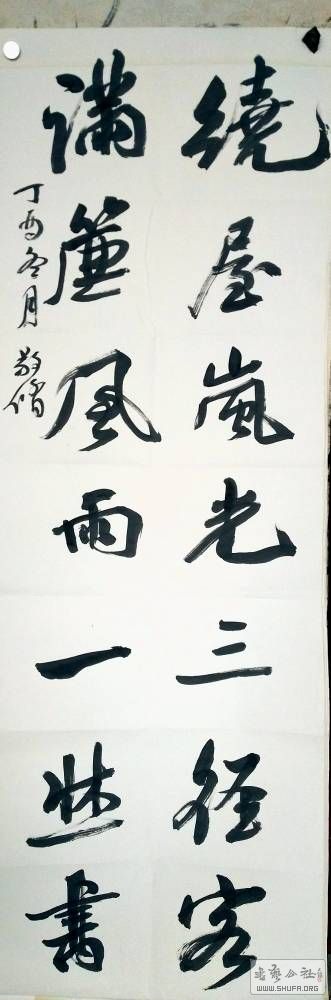 繞屋嵐光三径客
滿簾風雨一牀書
丁酉冬月
WWW.SHUFA.ORG